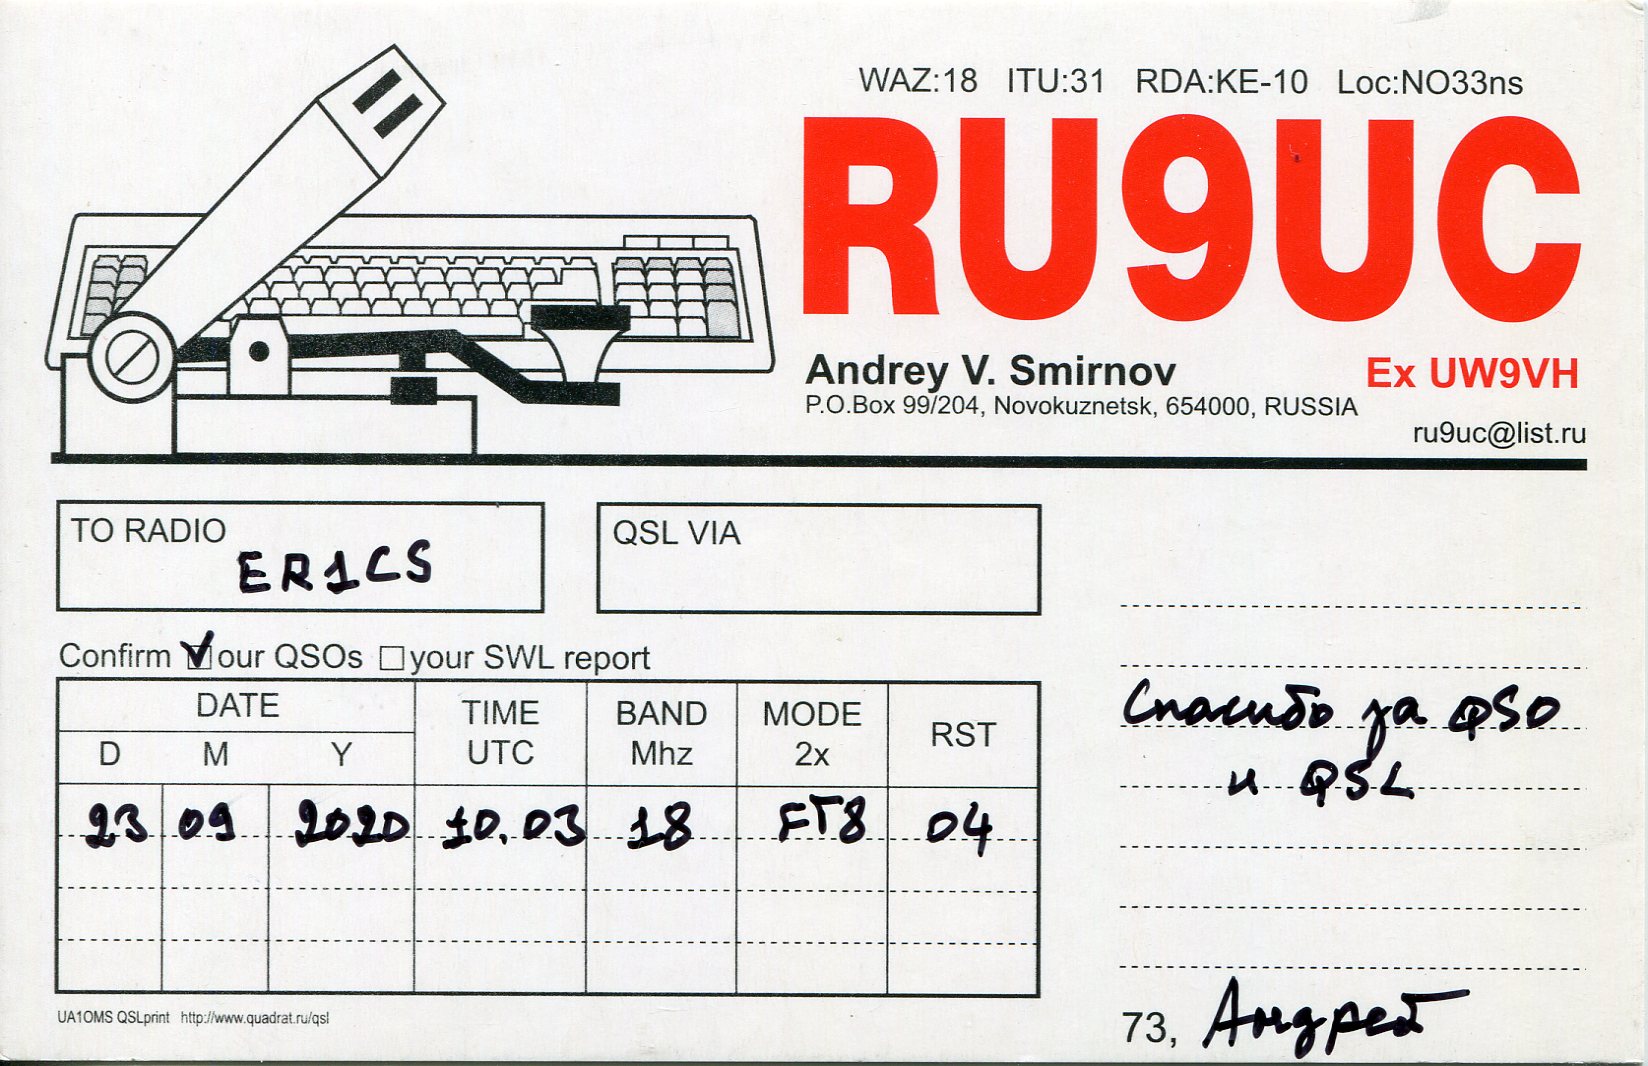 WAZ:18 ITU:31 RDA:KE-10 Loc:NO33ns
RU9UC
Andrey V. Smirnov
Ex UW9VH
P.O.Box 99/204, Novokuznetsk, 654000, RUSSIA
ru9uc@list.ru
TO RADIO
ER1CS
QSL VIA
Confirm our QSOs your SWL report
DATE
D M Y
TIME UTC
BAND Mhz
MODE 2x
RST
23 09 2020 10.03 18 FT8 04
Спасибо за QSO
и QSL
73, Андрей
UA1OMS QSLprint http://www.quadrat.ru/qsl